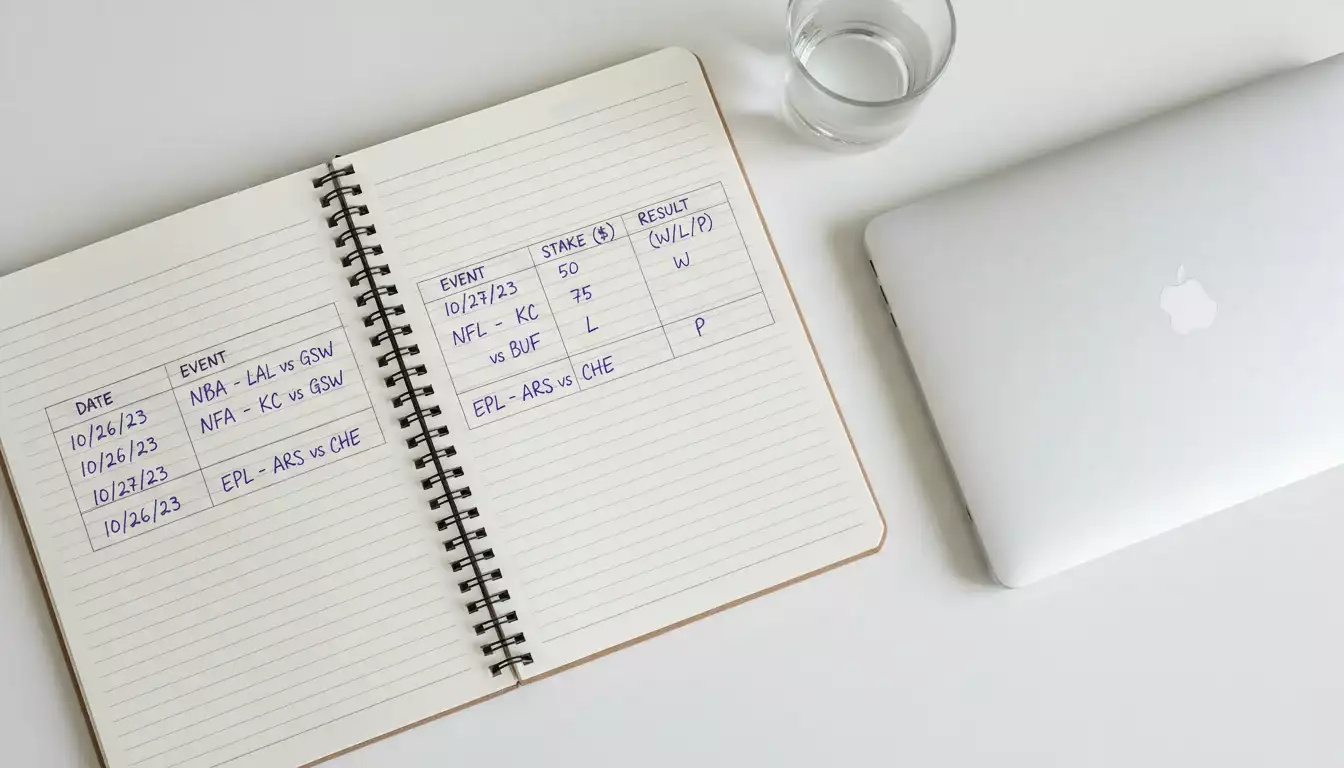 DATE EVENT
10/26/23 NBA - LAL vs GSW
10/26/23 NFA - KC vs GSW
10/27/23
10/26/23 EPL - ARS vs CHE
EVENT STAKE ($) RESULT
10/27/23 50 (W/L/P)
NFL - KC 75 W
vs BUF L
EPL - ARS vs CHE P